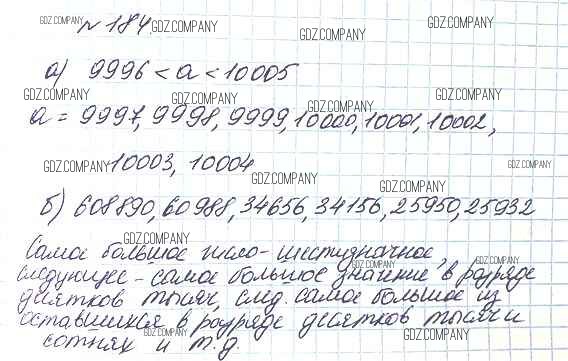 № 184.
GDZ.COMPANY GDZ.COMPANY GDZ.COMPANY GDZ.COMPANY
а) 9996 < а < 10005
GDZ.COMPANY GDZ.COMPANY GDZ.COMPANY GDZ.COMPANY
а = 9997, 9998, 9999, 10000, 10001, 10002,
GDZ.COMPANY 10003, 10004 GDZ.COMPANY
GDZ.COMPANY GDZ.COMPANY
б) 608890, 60988, 34656, 34156, 25950, 25932
GDZ.COMPANY
Самое большое число - шестизначное,
GDZ.COMPANY GDZ.COMPANY
следующее - самое большое значение в разряде
десятков тысяч, след. самое большое из
оставшихся в разряде десятков тысяч и
GDZ.COMPANY GDZ.COMPANY
сотнях и т.д.